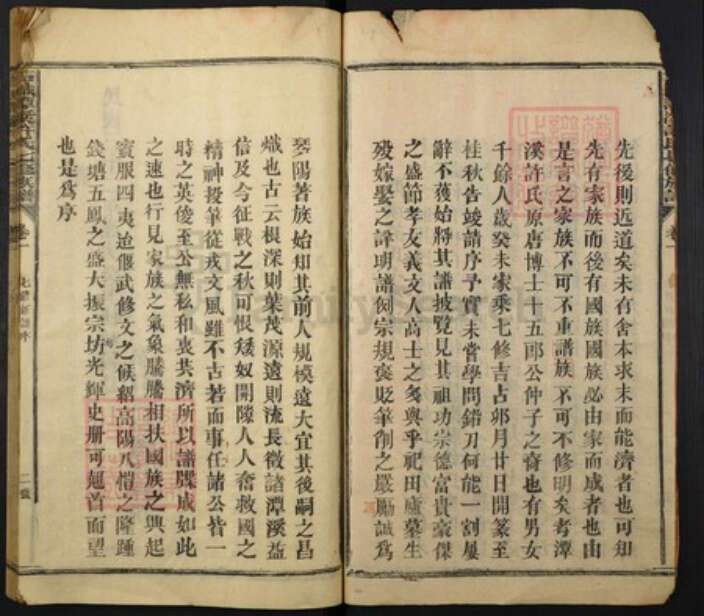 先後則近道矣未有舍本求末而能濟者也可知
先有家族而後有國族國族必由家而成者也由
是言之家族不可不重譜族不可不修明矣考潭
溪許氏原唐博士十五郎公仲子之裔也有男女
千餘人歲癸未家乘七修吉占卯月廿日開篆至
桂秋告竣請序予實未嘗學問錯刀何能一割屢
辭不獲始將其譜披覽見其祖功宗德富貴豪傑
之盛節孝友義文人高士之多與乎祀田廬墓生
歿嫁娶之詳明譜例宗規褒貶筆削之嚴勵誠為
琴陽著族始知其前人規模遠大宜其後嗣之昌
熾也古云根深則葉茂源遠則流長徵諸潭溪益
信及今征戰之秋可恨矮奴開隙人人奮救國之
精神投筆從戎文風雖不古若而事任諸公皆一
時之英俊至公無私和衷共濟所以譜牒成如此
之速也行見家族之氣象騰騰相扶國族之興起
賓服四夷迨偃武修文之候紹高陽八愷之隆踵
錢塘五鳳之盛大振宗坊光輝史冊可翹首而望
也是為序
卷一